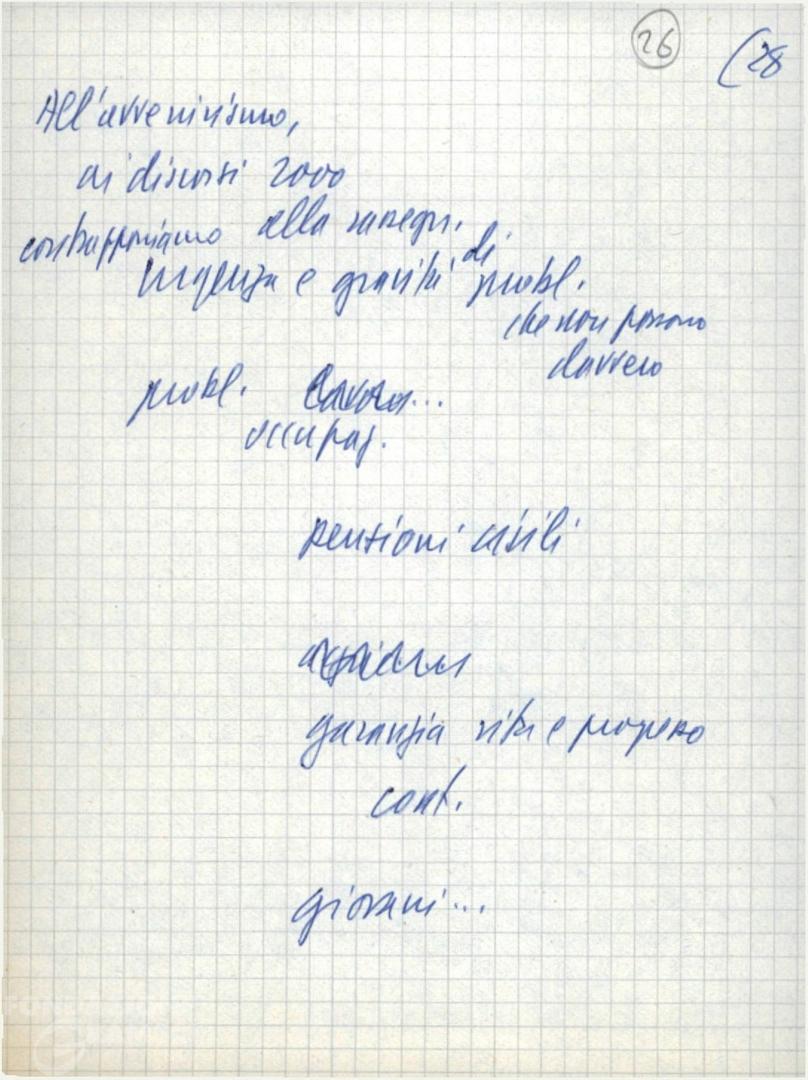 26
(28
All'avvenirismo,
ai discorsi 2000
contrapponiamo alla rassegn.
urgenza e gravità di probl.
che non possono
davvero
probl. lavoro...
occupaz.
pensioni civili
garanzia vita e progresso
cont.
giovani...